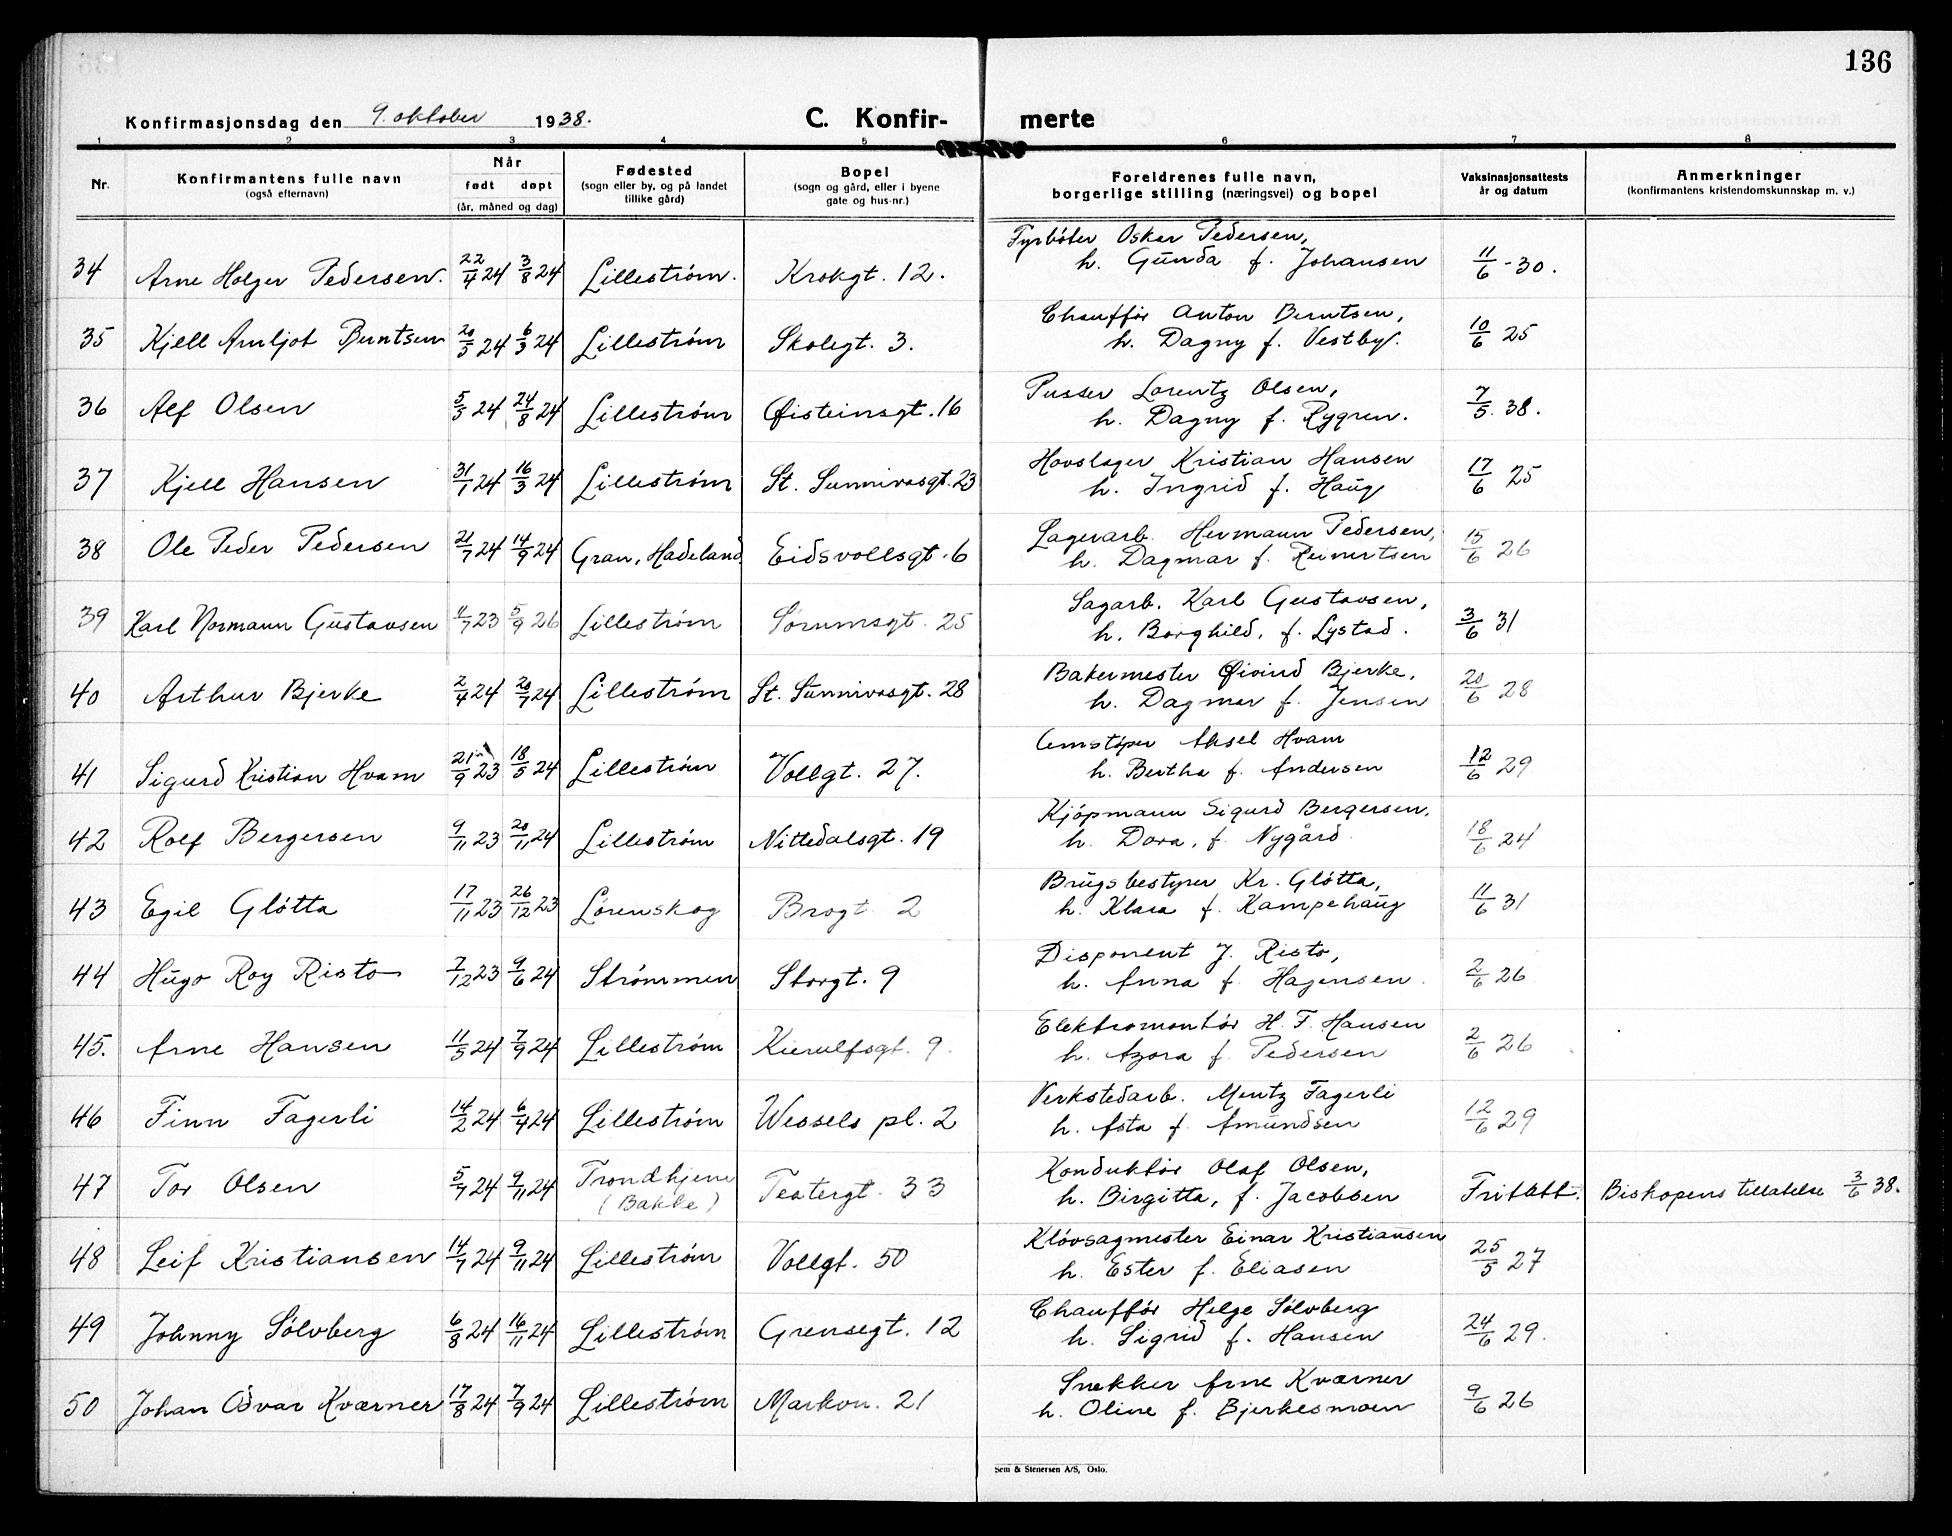 136
Konfirmasjonsdag den 9. oktober 1938.
C. Konfir- merte
1 2 3 4 5 6 7 8
Nr.
Konfirmantens fulle navn
(også efternavn)
Når
født døpt
(år, måned og dag)
Fødested
(sogn eller by, og på landet
tillike gård)
Bopel
(sogn og gård, eller i byene
gate og hus-nr.)
Foreldrenes fulle navn,
borgerlige stilling (næringsvei) og bopel
Vaksinasjonsattests
år og datum
Anmerkninger
(konfirmantens kristendomskunnskap m. v.)
Fyrbøter Oskar Pedersen,
34 Arne Holger Pedersen. 22/4 24 3/8 24 Lillestrøm. Krokgt. 12. h. Gunda f. Johansen 11/6 -30.
Chauffør Anton Berntsen,
35 Kjell Arnljot Berntsen 20/3 24 6/3 24 Lillestrøm Skolegt. 3. h. Dagny f. Vestby. 10/6 25
Pusser Lorentz Olsen,
36 Alf Olsen 5/3 24 24/8 24 Lillestrøm Øisteinsgt. 16 h. Dagny f. Rygren. 7/5. 38.
Hovslager Kristian Hansen
37 Kjell Hansen 31/1 24 16/3 24 Lillestrøm St. Sunnivasgt. 23 h. Ingrid f. Haug 17/6 25
Lagerarb. Hermann Pedersen,
38 Ole Peder Pedersen 21/7 24 14/9 24 Gran, Hadeland Eidsvollsgt. 6 h. Dagmar f. Reinertsen 15/6 26
Sagarb. Karl Gustavsen,
39 Karl Normann Gustavsen 11/7 23 5/9 26 Lillestrøm Sørumsgt. 25 h. Borghild, f. Lystad. 3/6 31
Bakermester Øivind Bjerke,
40 Arthur Bjerke 2/4 24 20/7 24 Lillestrøm St. Sunnivasgt. 28 h. Dagmar f. Jensen 20/6 28
Aksel Hvam
41 Sigurd Kristian Hvam 21/9 23 18/5 24 Lillestrøm Vollgt. 27. h. Bertha f. Andersen 12/6 29
Kjøpmann Sigurd Bergersen,
42 Rolf Bergersen 9/11 23 20/11 24 Lillestrøm Nittedalsgt. 19 h. Dora, f. Nygård 18/6 24
Brugsbestyrer Kr. Gløtta,
43 Egil Gløtta 17/11 23 26/12 23 Lørenskog Brogt. 2 h. Klara f. Kampehaug 11/6 31
Disponent J. Risto,
44 Hugo Roy Risto 7/12 23 9/6 24 Strømmen Storgt. 9 h. Anna f. Hagensen. 2/6 26
Elektromontør H. F. Hansen
45. Arne Hansen 11/5 24 7/9 24 Lillestrøm Kierulfsgt. 9. h. Azora f. Pedersen 2/6 26
Verkstedarb. Mentz Fagerli
46 Finn Fagerli 14/2 24 6/4 24 Lillestrøm Wessels pl. 2 h. Asta f. Amundsen 12/6 29
Konduktør Olaf Olsen,
47 Tor Olsen 5/7 24 9/11 24 Trondhjem (Bakke) Teatergt. 33 h. Birgitta, f. Jacobsen Fritatt. Biskopens tillatelse 3/6 38.
Kløvsagmester Einar Kristiansen
48 Leif Kristiansen 14/7 24 9/11 24 Lillestrøm Vollgt. 50 h. Ester f. Eliasen 25/5 27
Chauffør Helge Sølvberg
49 Johnny Sølvberg 6/8 24 16/11 24 Lillestrøm Grensegt. 12 h. Sigrid f. Hansen 24/6 29.
Snekker Arne Kværner
50 Johan Odvar Kværner 17/8 24 7/9 24 Lillestrøm Markvn. 21 h. Oline f. Bjerkesmoen 9/6 26
Sem & Stenersen A/S, Oslo.